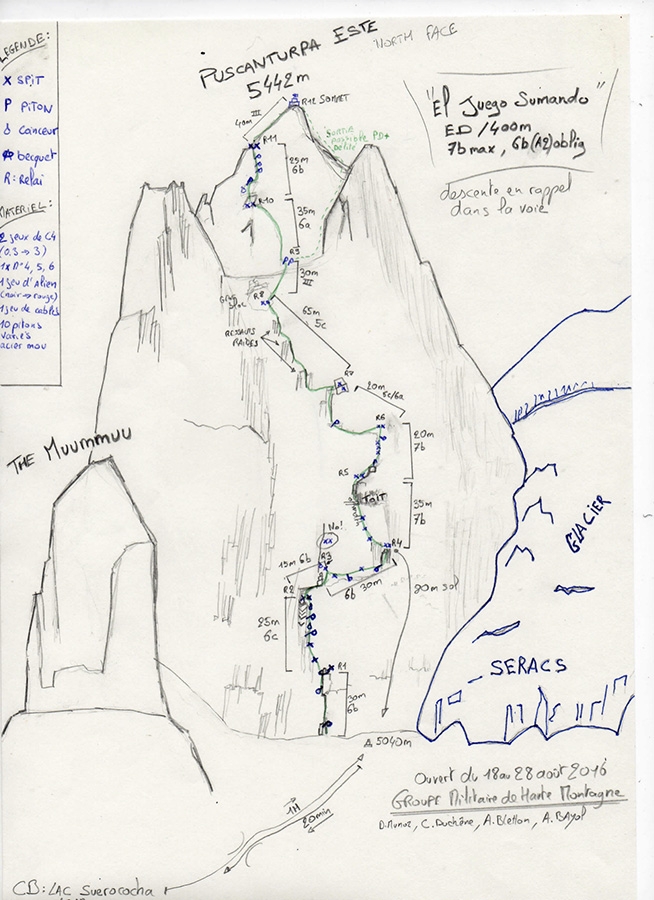 PUSCANTURPA ESTE
5442m
NORTH FACE
"El Juego Sumando"
ED/400m
7b max, 6b(A2)oblig
descente en rappel
dans la voie
LEGENDE:
x SPIT
P PITON
coinceur
becquet
R: Relai
MATERIEL:
2 jeux de C4
(0.3 → 3)
1x N°4, 5, 6
1 jeu d'Alien
(noir → rouge)
1 jeu de cables
10 pitons
variés
acier mou
R12 SOMMET
40m III
R11
SORTIE
POSSIBLE PD+
25m
6b
R10
35m
6a
R9
30m
III
R8
65m
5c
RESSAUTS
RAIDES
R7
20m
5c/6a
R6
20m
7b
R5
TOIT
35m
7b
No!
R4
R3
15m 6b
30m
6b
20m sol
R2
25m
6c
R1
30m
6b
THE MUUMMUU
GLACIER
SERACS
5040m
1H
20min
CB: LAC SUEROCOCHA
Ouvert du 18 au 28 août 2016
GROUPE Militaire de Haute Montagne
D.Munoz, C.Duchêne, A.Bletton, A.BAyol